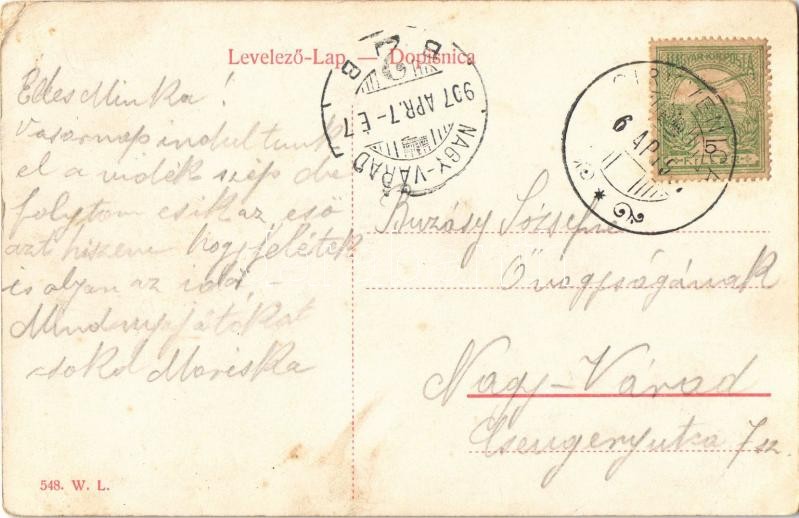 Levelező-Lap — Dopisnica
Édes Minka!
Vasárnap indultunk
el a vidék szép de
folyton csik az eső
azt hiszem hogy felétek
is olyan az idő. –
Mindnyájatokat
csokol Mariska
548. W. L.
NAGY-VÁRAD
907 APR. 7 - É. 7
B
B
MAGYAR KIR. POSTA
5
6 APR
Buzásy
Őnagyságának
Nagy-Várad
Csengery utca 7 sz.